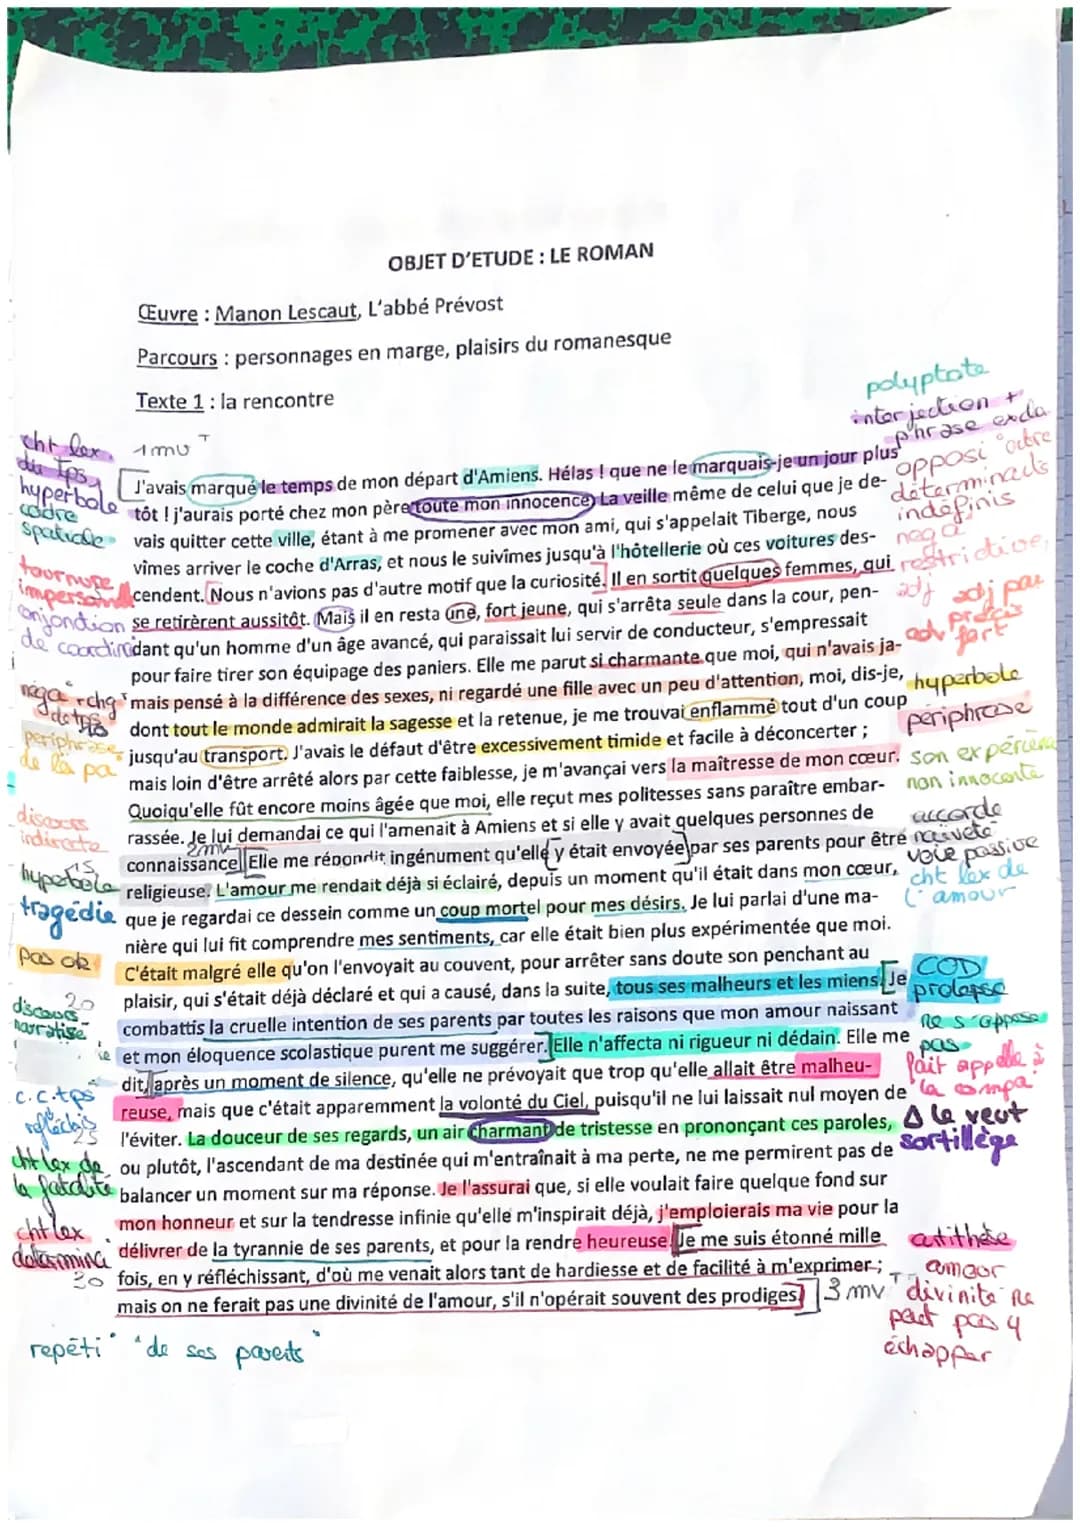 OBJET D'ETUDE : LE ROMAN
Œuvre : Manon Lescaut, L'abbé Prévost
Parcours : personnages en marge, plaisirs du romanesque
Texte 1 : la rencontre
polyptote
interjection +
phrase excla
cht lex.
du tps,
hyperbole
cadre
spatiale
1 mv T
J'avais marqué le temps de mon départ d'Amiens. Hélas ! que ne le marquais-je un jour plus
tôt ! j'aurais porté chez mon père toute mon innocence. La veille même de celui que je de-
vais quitter cette ville, étant à me promener avec mon ami, qui s'appelait Tiberge, nous
vîmes arriver le coche d'Arras, et nous le suivîmes jusqu'à l'hôtellerie où ces voitures des-
cendent. Nous n'avions pas d'autre motif que la curiosité. Il en sortit quelques femmes, qui
se retirèrent aussitôt. Mais il en resta une, fort jeune, qui s'arrêta seule dans la cour, pen-
dant qu'un homme d'un âge avancé, qui paraissait lui servir de conducteur, s'empressait
pour faire tirer son équipage des paniers. Elle me parut si charmante que moi, qui n'avais ja-
mais pensé à la différence des sexes, ni regardé une fille avec un peu d'attention, moi, dis-je,
dont tout le monde admirait la sagesse et la retenue, je me trouvai enflammé tout d'un coup
jusqu'au transport. J'avais le défaut d'être excessivement timide et facile à déconcerter ;
mais loin d'être arrêté alors par cette faiblesse, je m'avançai vers la maîtresse de mon cœur.
Quoiqu'elle fût encore moins âgée que moi, elle reçut mes politesses sans paraître embar-
rassée. Je lui demandai ce qui l'amenait à Amiens et si elle y avait quelques personnes de
2 mv
connaissance. Elle me répondit ingénument qu'elle y était envoyée par ses parents pour être
religieuse. L'amour me rendait déjà si éclairé, depuis un moment qu'il était dans mon cœur,
que je regardai ce dessein comme un coup mortel pour mes désirs. Je lui parlai d'une ma-
nière qui lui fit comprendre mes sentiments, car elle était bien plus expérimentée que moi.
C'était malgré elle qu'on l'envoyait au couvent, pour arrêter sans doute son penchant au
plaisir, qui s'était déjà déclaré et qui a causé, dans la suite, tous ses malheurs et les miens. Je
combattis la cruelle intention de ses parents par toutes les raisons que mon amour naissant
et mon éloquence scolastique purent me suggérer. Elle n'affecta ni rigueur ni dédain. Elle me
dit, après un moment de silence, qu'elle ne prévoyait que trop qu'elle allait être malheu-
reuse, mais que c'était apparemment la volonté du Ciel, puisqu'il ne lui laissait nul moyen de
l'éviter. La douceur de ses regards, un air charmant de tristesse en prononçant ces paroles,
ou plutôt, l'ascendant de ma destinée qui m'entraînait à ma perte, ne me permirent pas de
balancer un moment sur ma réponse. Je l'assurai que, si elle voulait faire quelque fond sur
mon honneur et sur la tendresse infinie qu'elle m'inspirait déjà, j'emploierais ma vie pour la
délivrer de la tyrannie de ses parents, et pour la rendre heureuse. Je me suis étonné mille
fois, en y réfléchissant, d'où me venait alors tant de hardiesse et de facilité à m'exprimer ;
mais on ne ferait pas une divinité de l'amour, s'il n'opérait souvent des prodiges. 3 mv T
tournure
impersonn
conjonction
de coordin
néga° + chg
de tps
periphrase
de la pa°
discours
indirecte
15
hyperbole
tragédie
pas ok
20
discours
narratisé
c.c.tps
réfléchis
25
cht lex de
la fatalité
cht lex
30
opposi° entre
déterminants
indéfinis
néga°
restrictive,
adj adj par
adv fort
hyperbole
périphrase
son expérience
non innocente
accorde
naïveté
voie passive
cht lex de
l'amour
COD
prolepse
ne s'oppose
pas
fait appelle à
la compa°
Δ le veut
sortillège
antithèse
amour
divinité ne
peut pas y
échapper
repéti° "de ses parents"